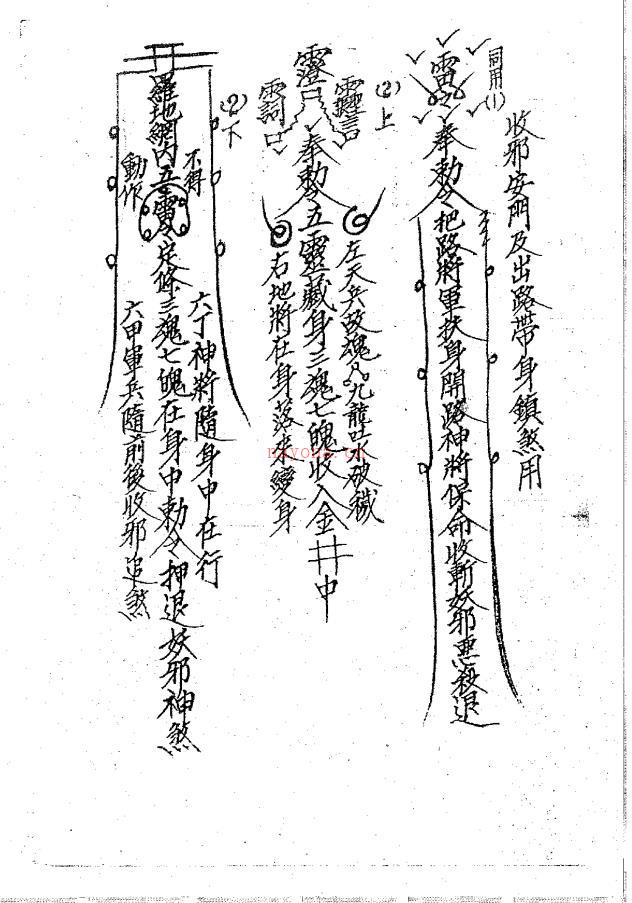 收邪安門及出路帶身鎖煞用
同用(1)
奉勅令把路將軍扶身開路神將保命收斬妖邪惡殺退
(2)上
奉勅令五靈藏身三魂七魄收入金井中
左天兵故魂九龍吐水破穢
右地將在身落來變身
(2)下
羅地網內五雷
不得
動作
三魂七魄在身中勅令押退妖邪神煞
六丁神將隨身中在行
六甲軍兵隨前後收邪追煞